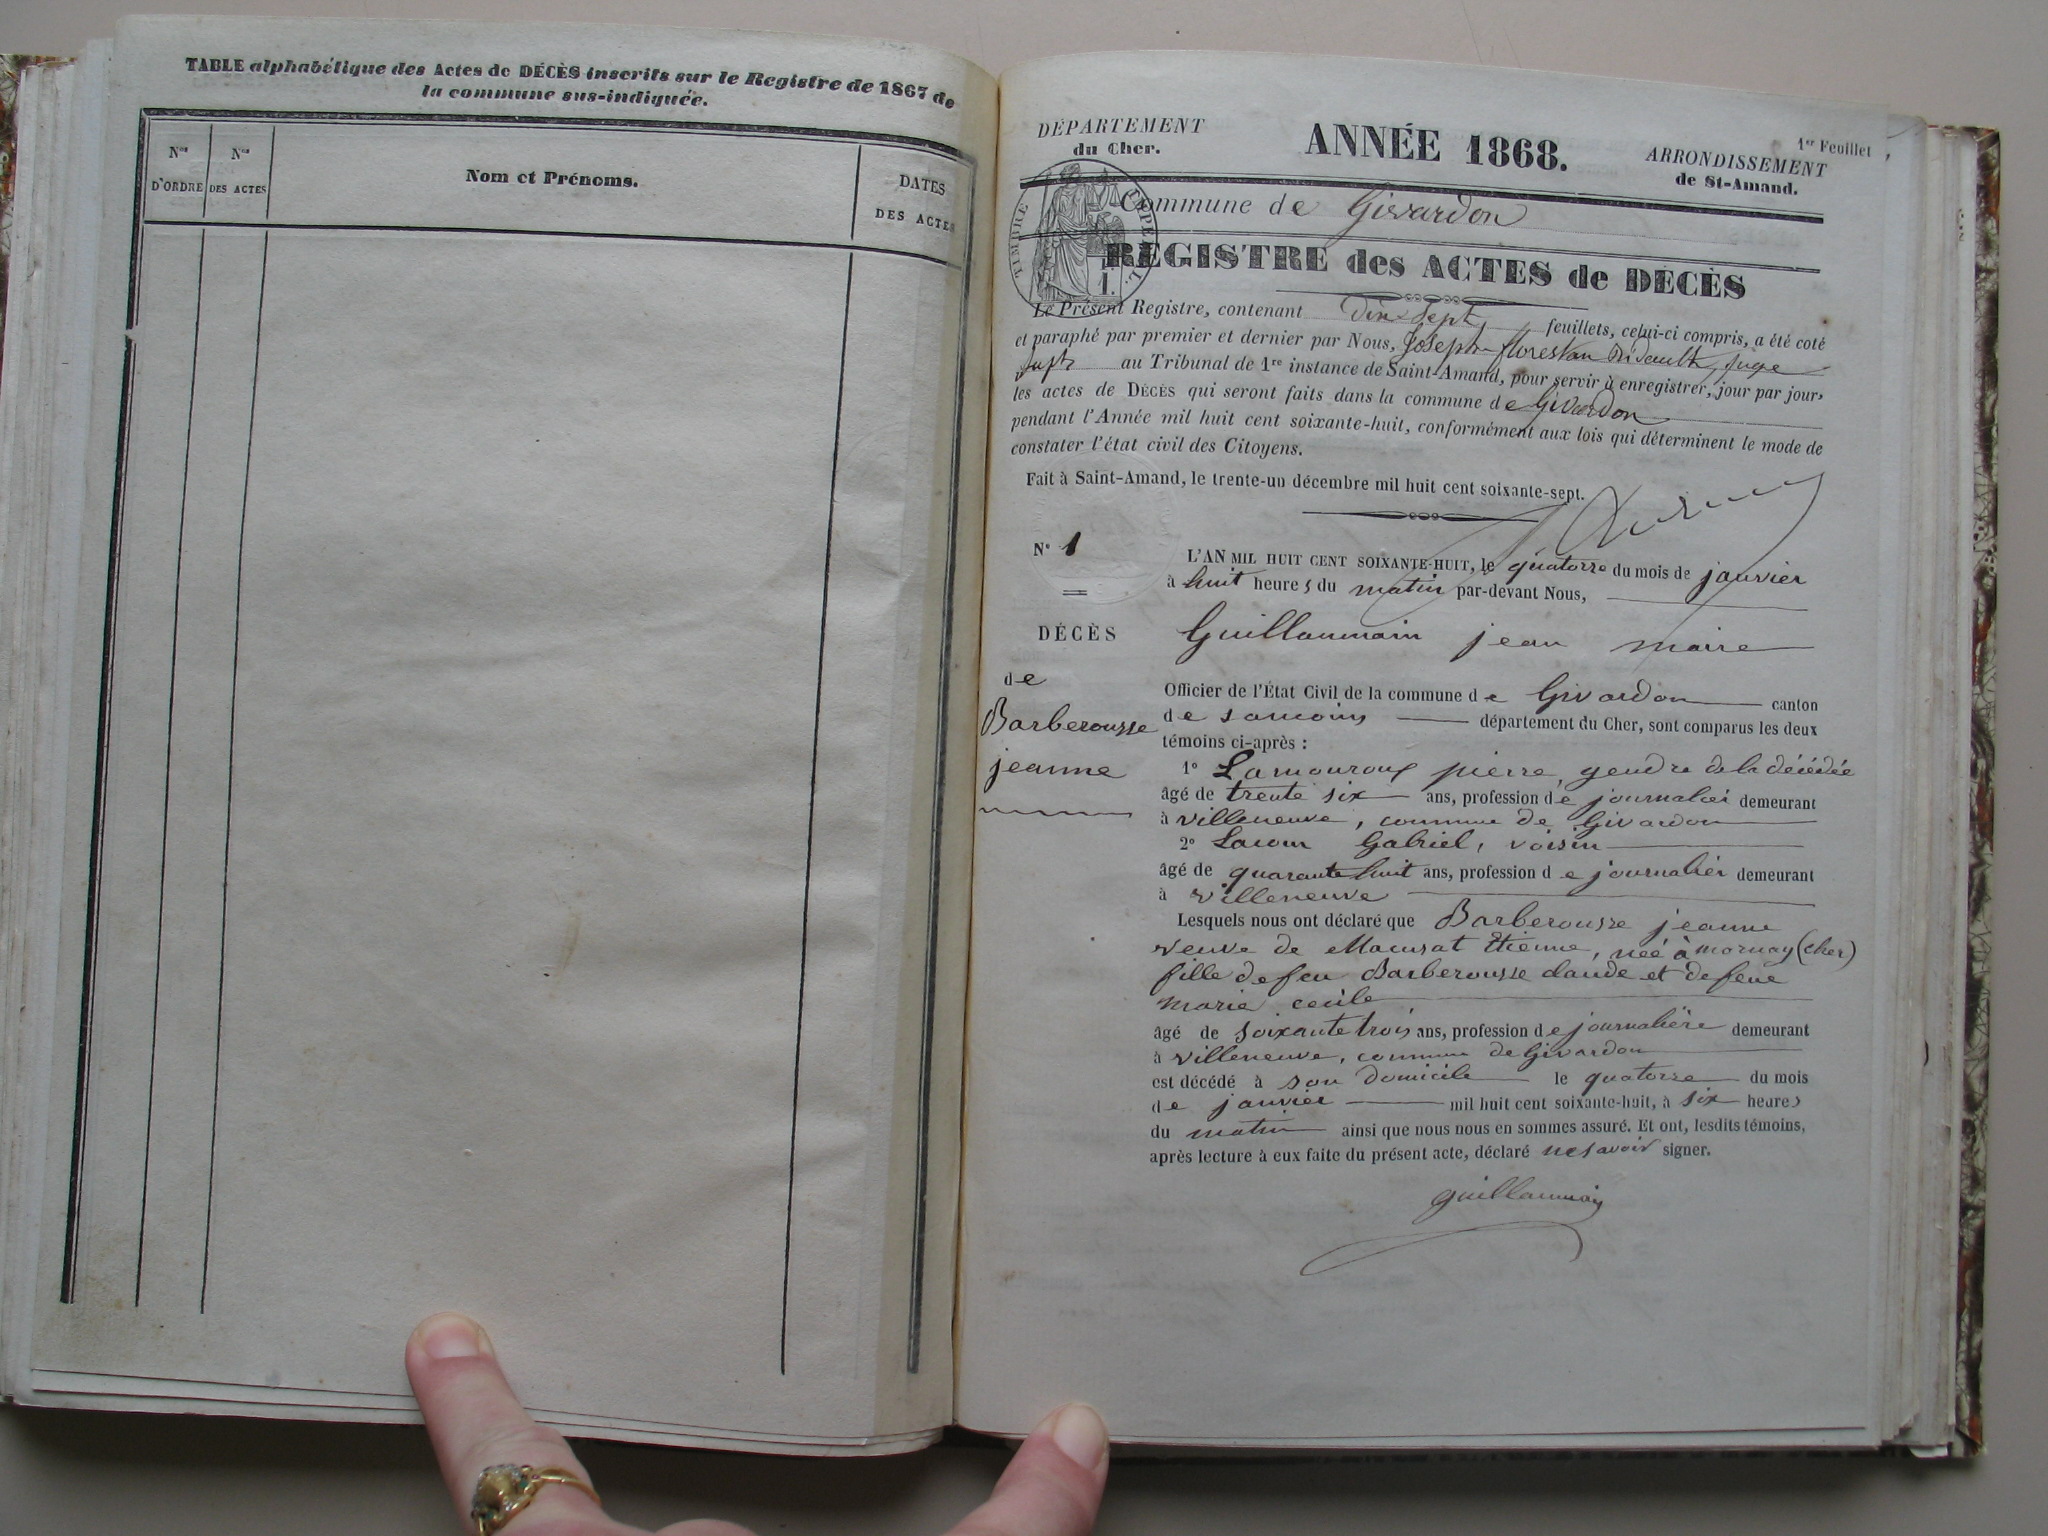 TABLE alphabétique des Actes de DÉCÈS inscrits sur le Registre de 1867 de
la commune sus-indiquée.
Nos D'ORDRE
Nos DES ACTES
Nom et Prénoms.
DATES DES ACTES
DÉPARTEMENT
du Cher.
ANNÉE 1868.
1er Feuillet
ARRONDISSEMENT
de St-Amand.
Commune de Givardon
TIMBRE IMPÉRIAL
REGISTRE des ACTES de DÉCÈS
Le Présent Registre, contenant dix sept feuillets, celui-ci compris, a été coté
et paraphé par premier et dernier par Nous, Joseph florestan juge
supt au Tribunal de 1re instance de Saint-Amand, pour servir à enregistrer, jour par jour,
les actes de DÉCÈS qui seront faits dans la commune de Givardon
pendant l'Année mil huit cent soixante-huit, conformément aux lois qui déterminent le mode de
constater l'état civil des Citoyens.
Fait à Saint-Amand, le trente-un décembre mil huit cent soixante-sept.
N° 1
L'AN MIL HUIT CENT SOIXANTE-HUIT, le quatorze du mois de janvier
à huit heures du matin par-devant Nous,
DÉCÈS
de
Barberousse
jeanne
Guillaumain jean maire
Officier de l'État Civil de la commune de Givardon canton
de sancoins département du Cher, sont comparus les deux
témoins ci-après :
1° Lamouroux pierre, gendre de la décédée
âgé de trente six ans, profession de journalier demeurant
à villeneuve, commune de Givardon
2° Lacour Gabriel, voisin
âgé de quarante huit ans, profession de journalier demeurant
à villeneuve
Lesquels nous ont déclaré que Barberousse jeanne
veuve de Macusat Etienne, née à mornay (cher)
fille de feu Barberousse claude et de feue
marie cecile
âgé de soixante trois ans, profession de journalière demeurant
à villeneuve, commune de Givardon
est décédé à son domicile le quatorze du mois
de janvier mil huit cent soixante-huit, à six heures
du matin ainsi que nous nous en sommes assuré. Et ont, lesdits témoins,
après lecture à eux faite du présent acte, déclaré ne savoir signer.
guillaumain